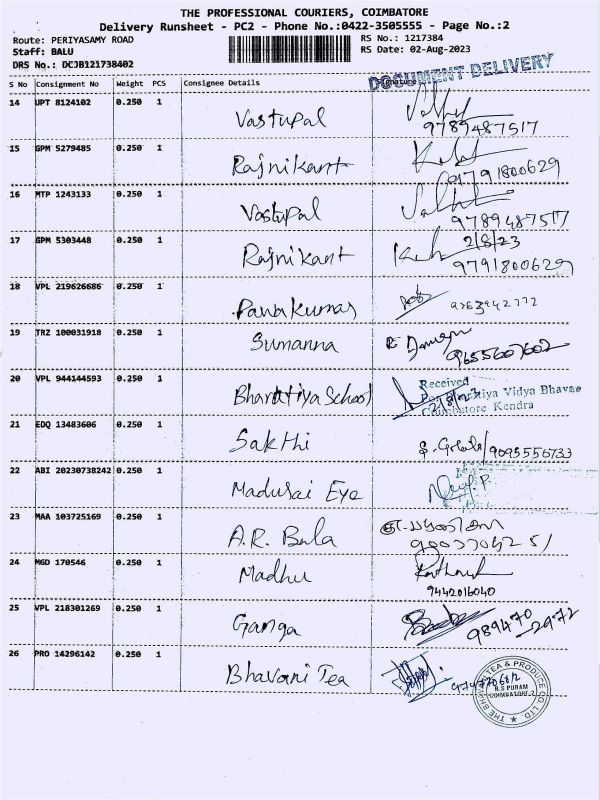 THE PROFESSIONAL COURIERS, COIMBATORE
Delivery Runsheet - PC2 - Phone No.:0422-3505555 - Page No.:2
Route: PERIYASAMY ROAD RS No.: 1217384
Staff: BALU RS Date: 02-Aug-2023
DRS No.: DCJB121738402
DOCUMENT DELIVERY
S No Consignment No Weight PCS Consignee Details Signature
14 UPT 8124102 0.250 1 Vastupal
9789487517
15 GPM 5279485 0.250 1 Rajnikant
9791800629
16 MTP 1243133 0.250 1 Vastupal
9789487517
17 GPM 5303448 0.250 1 Rajnikant 2/8/23
9791800629
18 VPL 219626686 0.250 1 Pavakumar
19 TRZ 100031918 0.250 1 Sumanna
9655607602
20 VPL 944144593 0.250 1 Bharatiya School
Received
2/8/23 Vidya Bhavan
Coimbatore Kendra
21 EDQ 13483606 0.250 1 Sakthi
9095556733
22 ABI 20230738242 0.250 1 Madurai Eye
23 MAA 103725169 0.250 1 A.R. Bala
24 MGD 170546 0.250 1 Madhu
9442016040
25 VPL 218301269 0.250 1 Ganga
989470 2972
26 PRO 14296142 0.250 1 Bhavani Tea
THE BHAVANI TEA & PRODUCE CO. LTD.
R.S PURAM
COIMBATORE-2